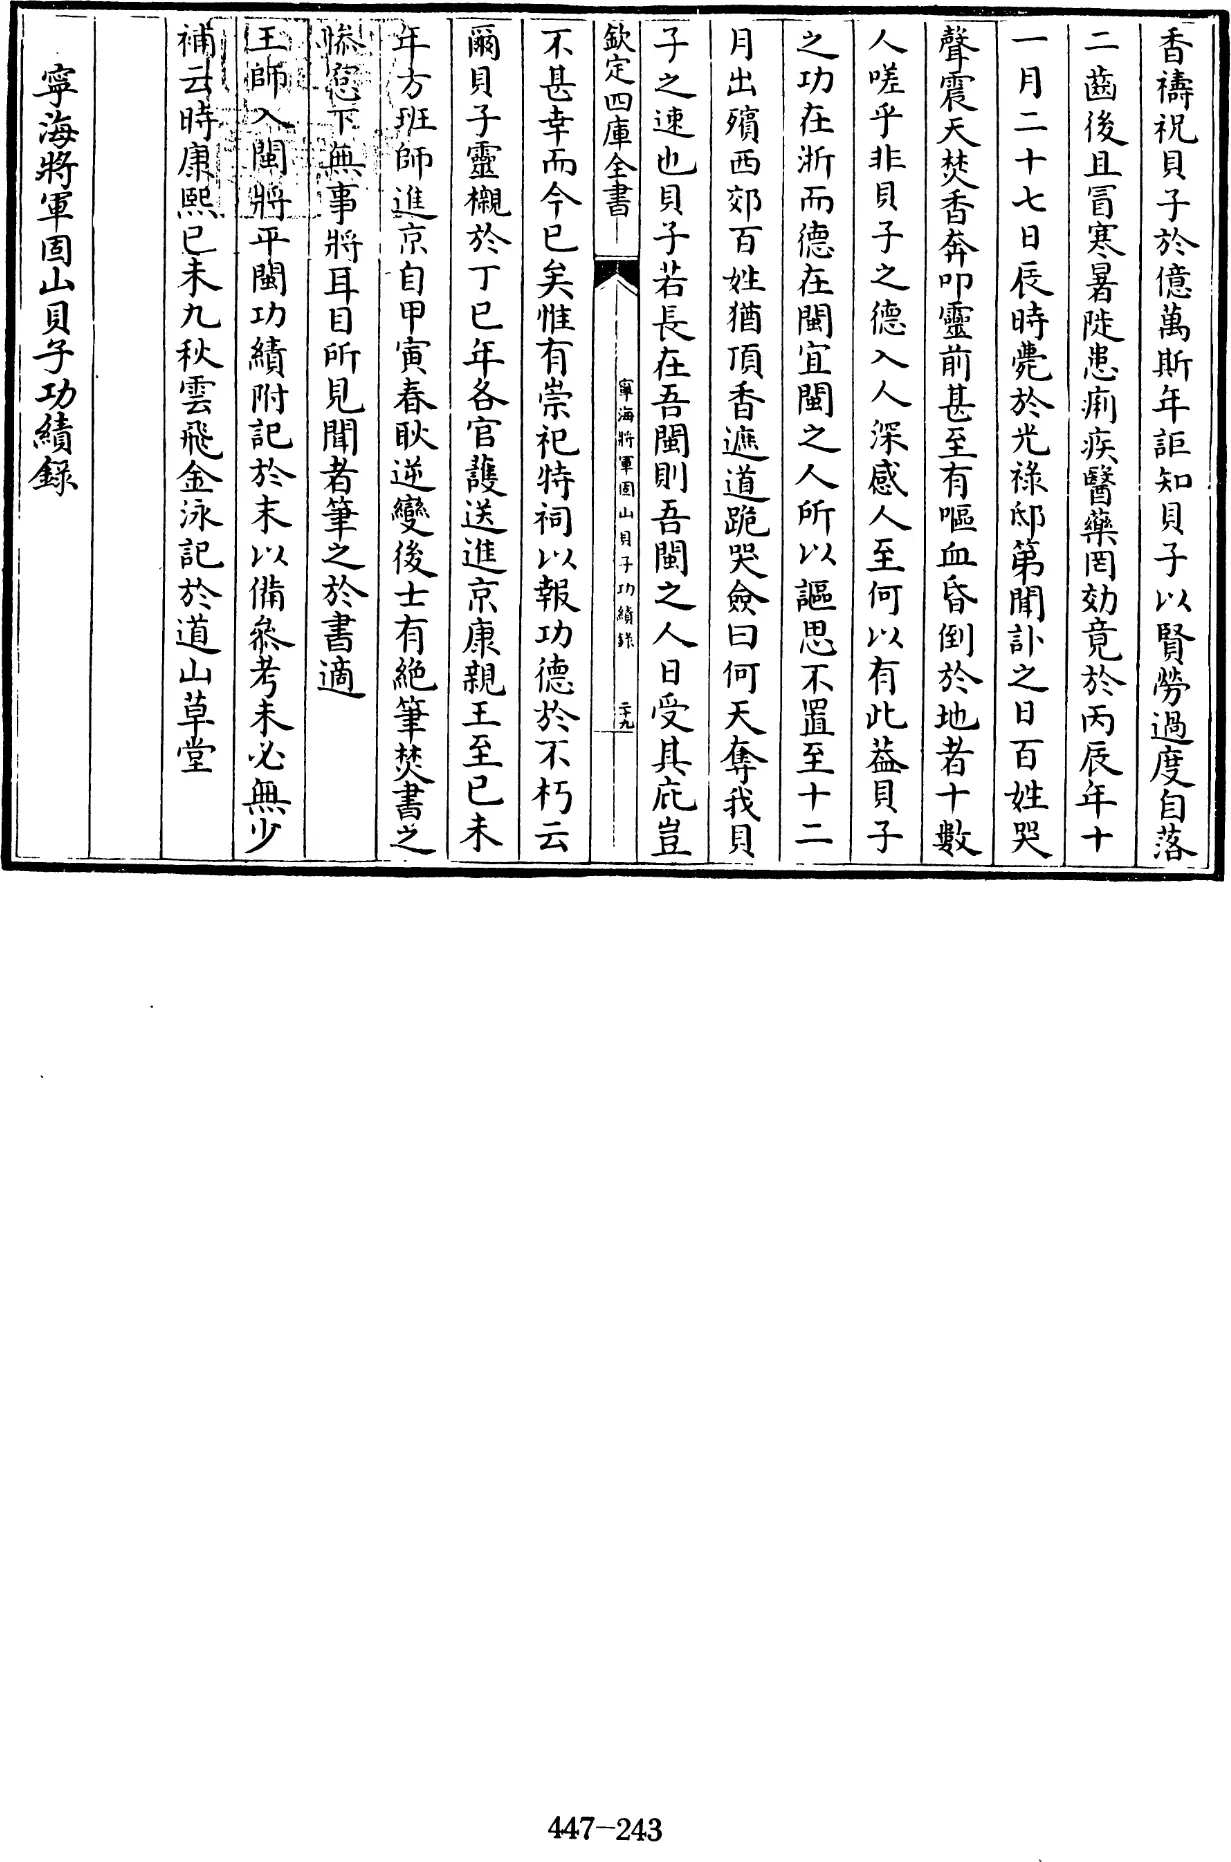 香禱祝貝子於億萬斯年詎知貝子以賢勞過度自落
二齒後且冒寒暑陡患痢疾醫藥罔効竟於丙辰年十
一月二十七日辰時薨於光祿邸第聞訃之日百姓哭
聲震天焚香奔叩靈前甚至有嘔血昏倒於地者十數
人嗟乎非貝子之德入人深感人至何以有此葢貝子
之功在浙而德在閩宜閩之人所以謳思不置至十二
月出殯西郊百姓猶頂香遮道跪哭僉曰何天奪我貝
子之速也貝子若長在吾閩則吾閩之人日受其庇豈
欽定四庫全書
寧海將軍固山貝子功績錄
二十九
不甚幸而今已矣惟有崇祀特祠以報功德於不朽云
爾貝子靈櫬於丁巳年各官護送進京康親王至已未
年方班師進京自甲寅春耿逆變後士有絶筆焚書之
慘窓下無事將耳目所見聞者筆之於書適
王師入閩將平閩功績附記於末以備叅考未必無少
補云時康熙已未九秋雲飛金泳記於道山草堂
寧海將軍固山貝子功績錄
447-243